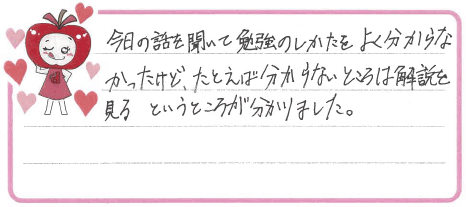 今日の話を聞いて勉強のしかたをよく分からな
かったけど、たとえば分からないところは解説を
見る というところが分かりました。